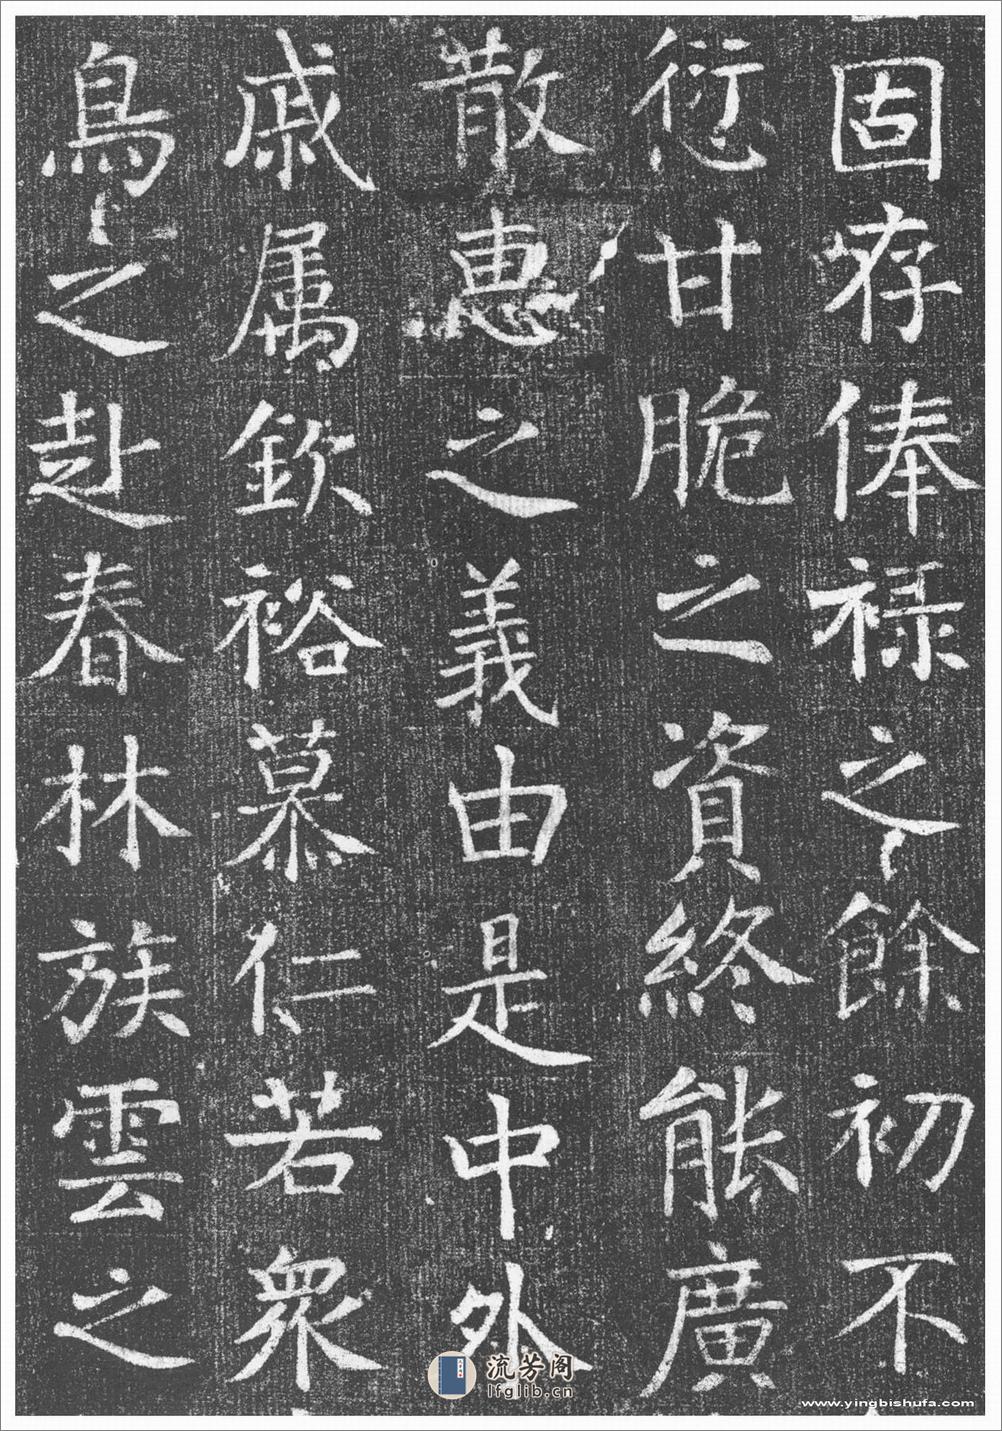 固存俸禄之餘初不
衍甘脆之資終能廣
散惠之義由是中外
戚属欽裕慕仁若衆
鳥之赴春林族雲之
流芳阁
lfglib.cn
www.yingbishufa.com